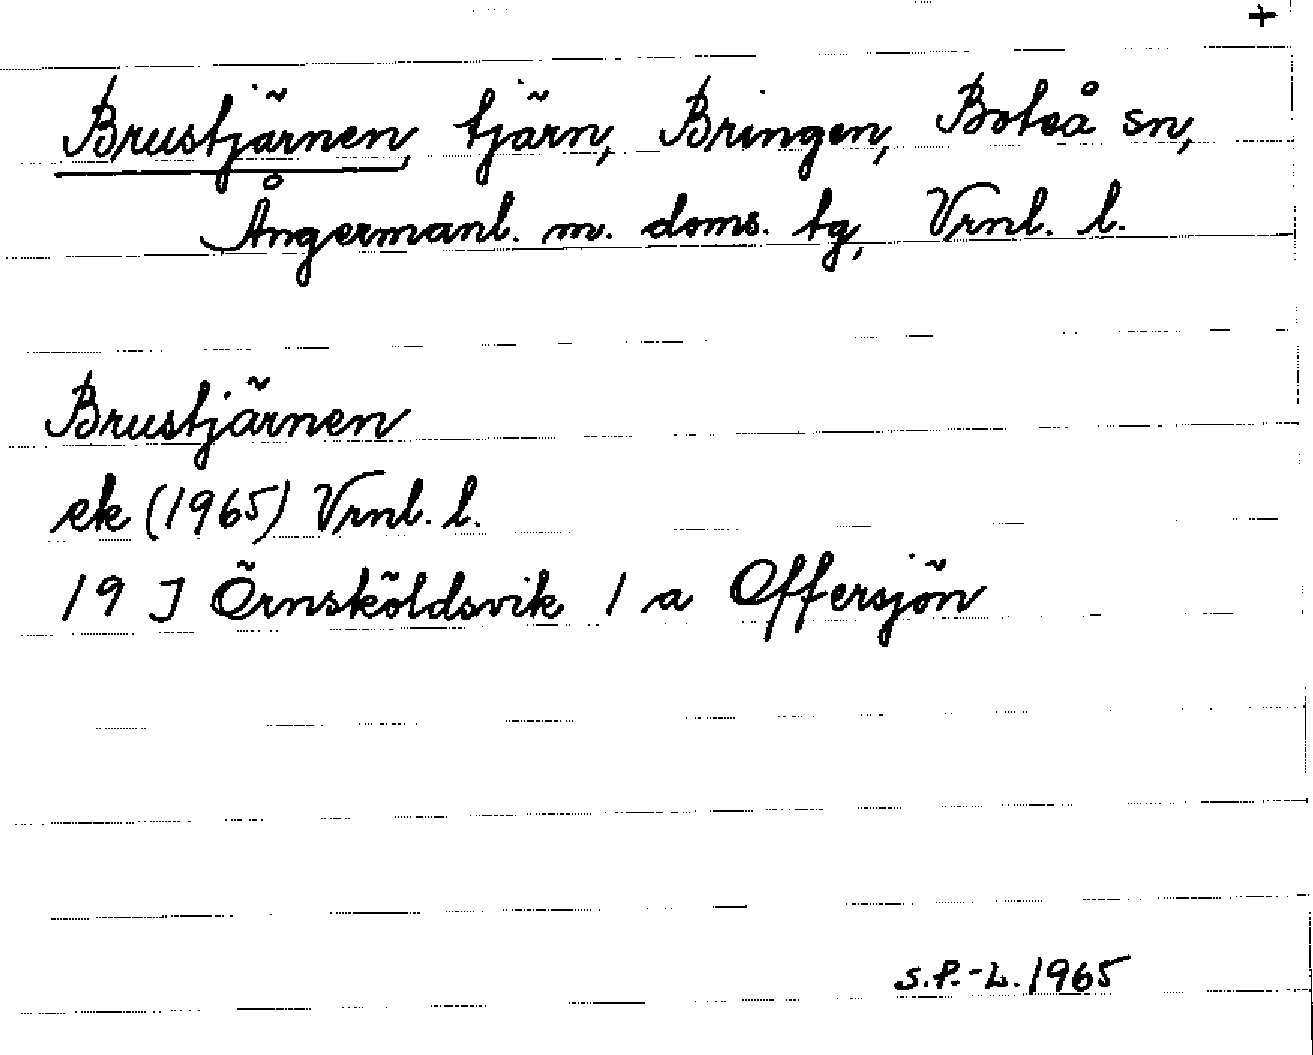 +
Brustjärnen, tjärn, Bringen, Boteå sn,
Ångermanl. m. doms. tg, Vrnl. l.
Brustjärnen
ek (1965) Vrnl. l.
19 J Örnsköldsvik 1 a Offersjön
S.P.-L. 1965